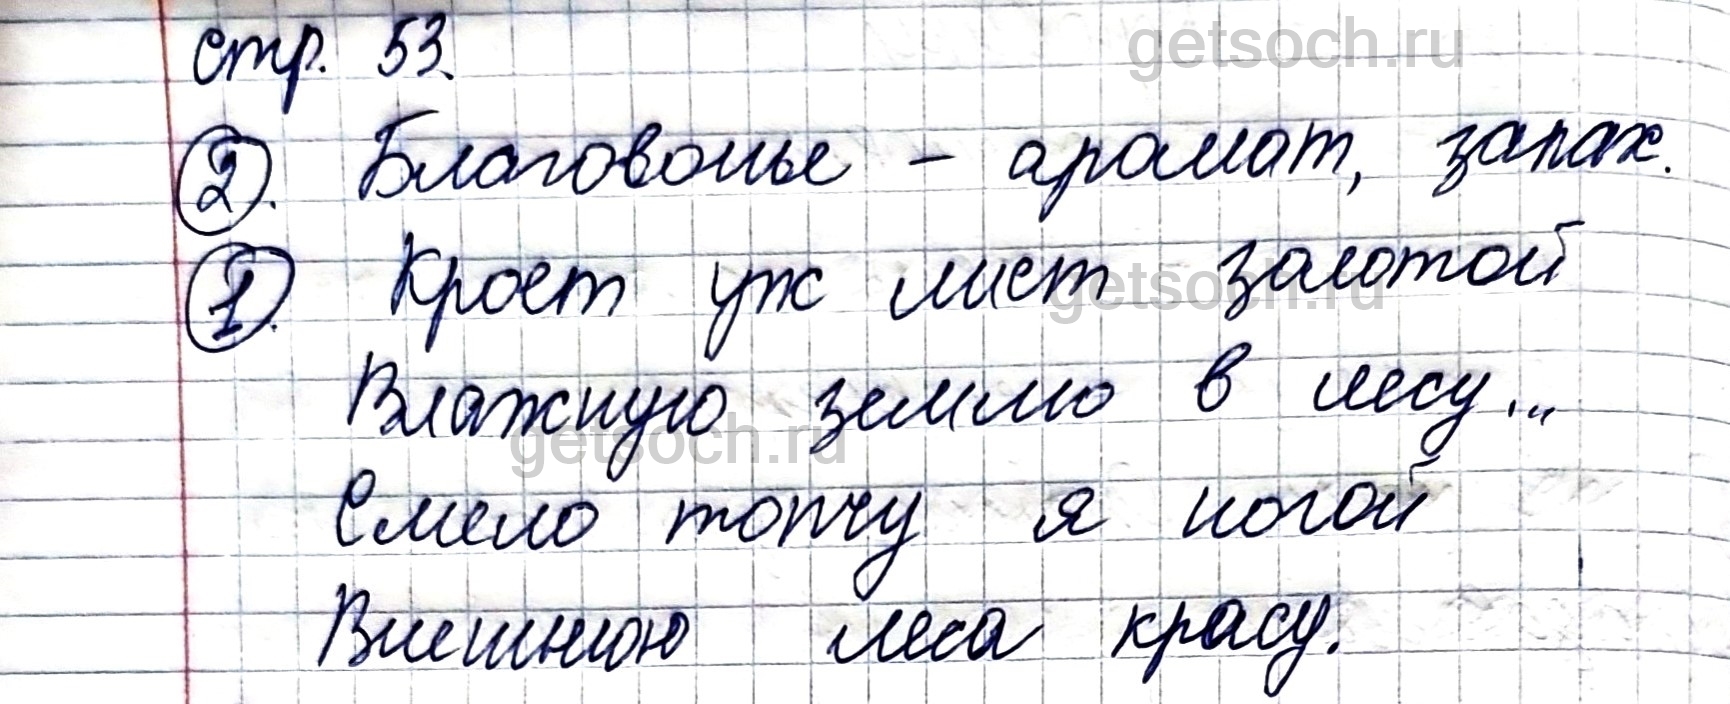 стр. 53. getsoch.ru
2. Благовонье – аромат, запах.
1. Кроет уж лист золотой
getsoch.ru
Влажную землю в лесу...
getsoch.ru
Смело топчу я ногой
Внешнюю леса красу.